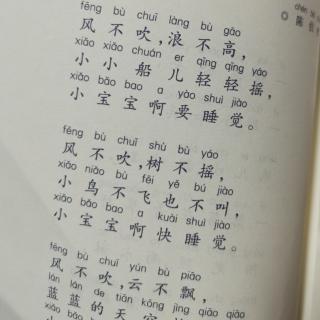 fēng bù chuī làng bù gāo
风不吹，浪不高，
xiǎo xiǎo chuán er qīng qīng yáo
小小船儿轻轻摇，
xiǎo bǎo bao a yào shuì jiào
小宝宝啊要睡觉。
fēng bù chuī shù bù yáo
风不吹，树不摇，
xiǎo niǎo bù fēi yě bú jiào
小鸟不飞也不叫，
xiǎo bǎo bao a kuài shuì jiào
小宝宝啊快睡觉。
fēng bù chuī yún bù piāo
风不吹，云不飘，
lán lán de tiān kōng jìng qiǎo qiǎo
蓝蓝的天空静
小宝宝
chén
◎ 陈